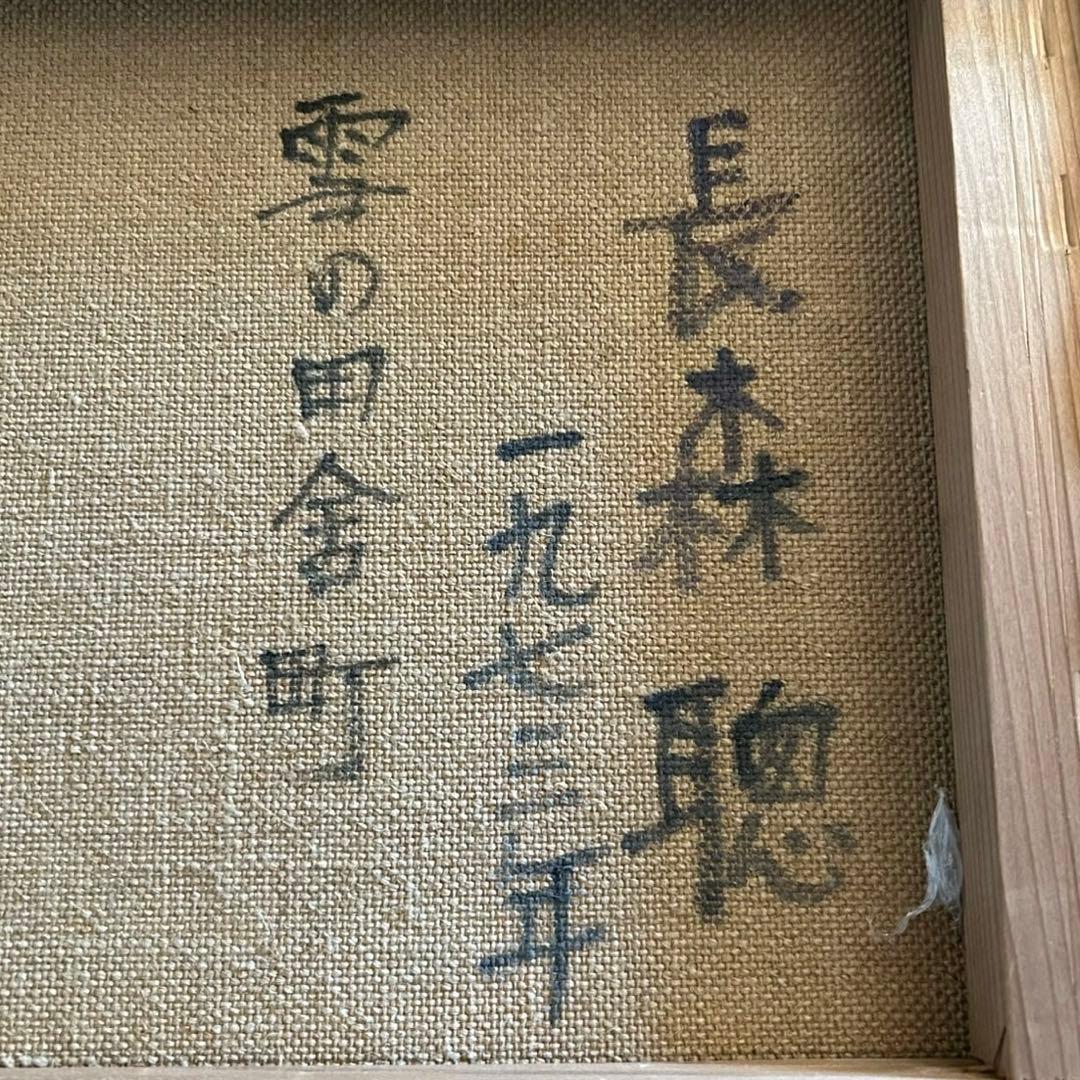 長森 聰
一九七三年
雲の田舎町